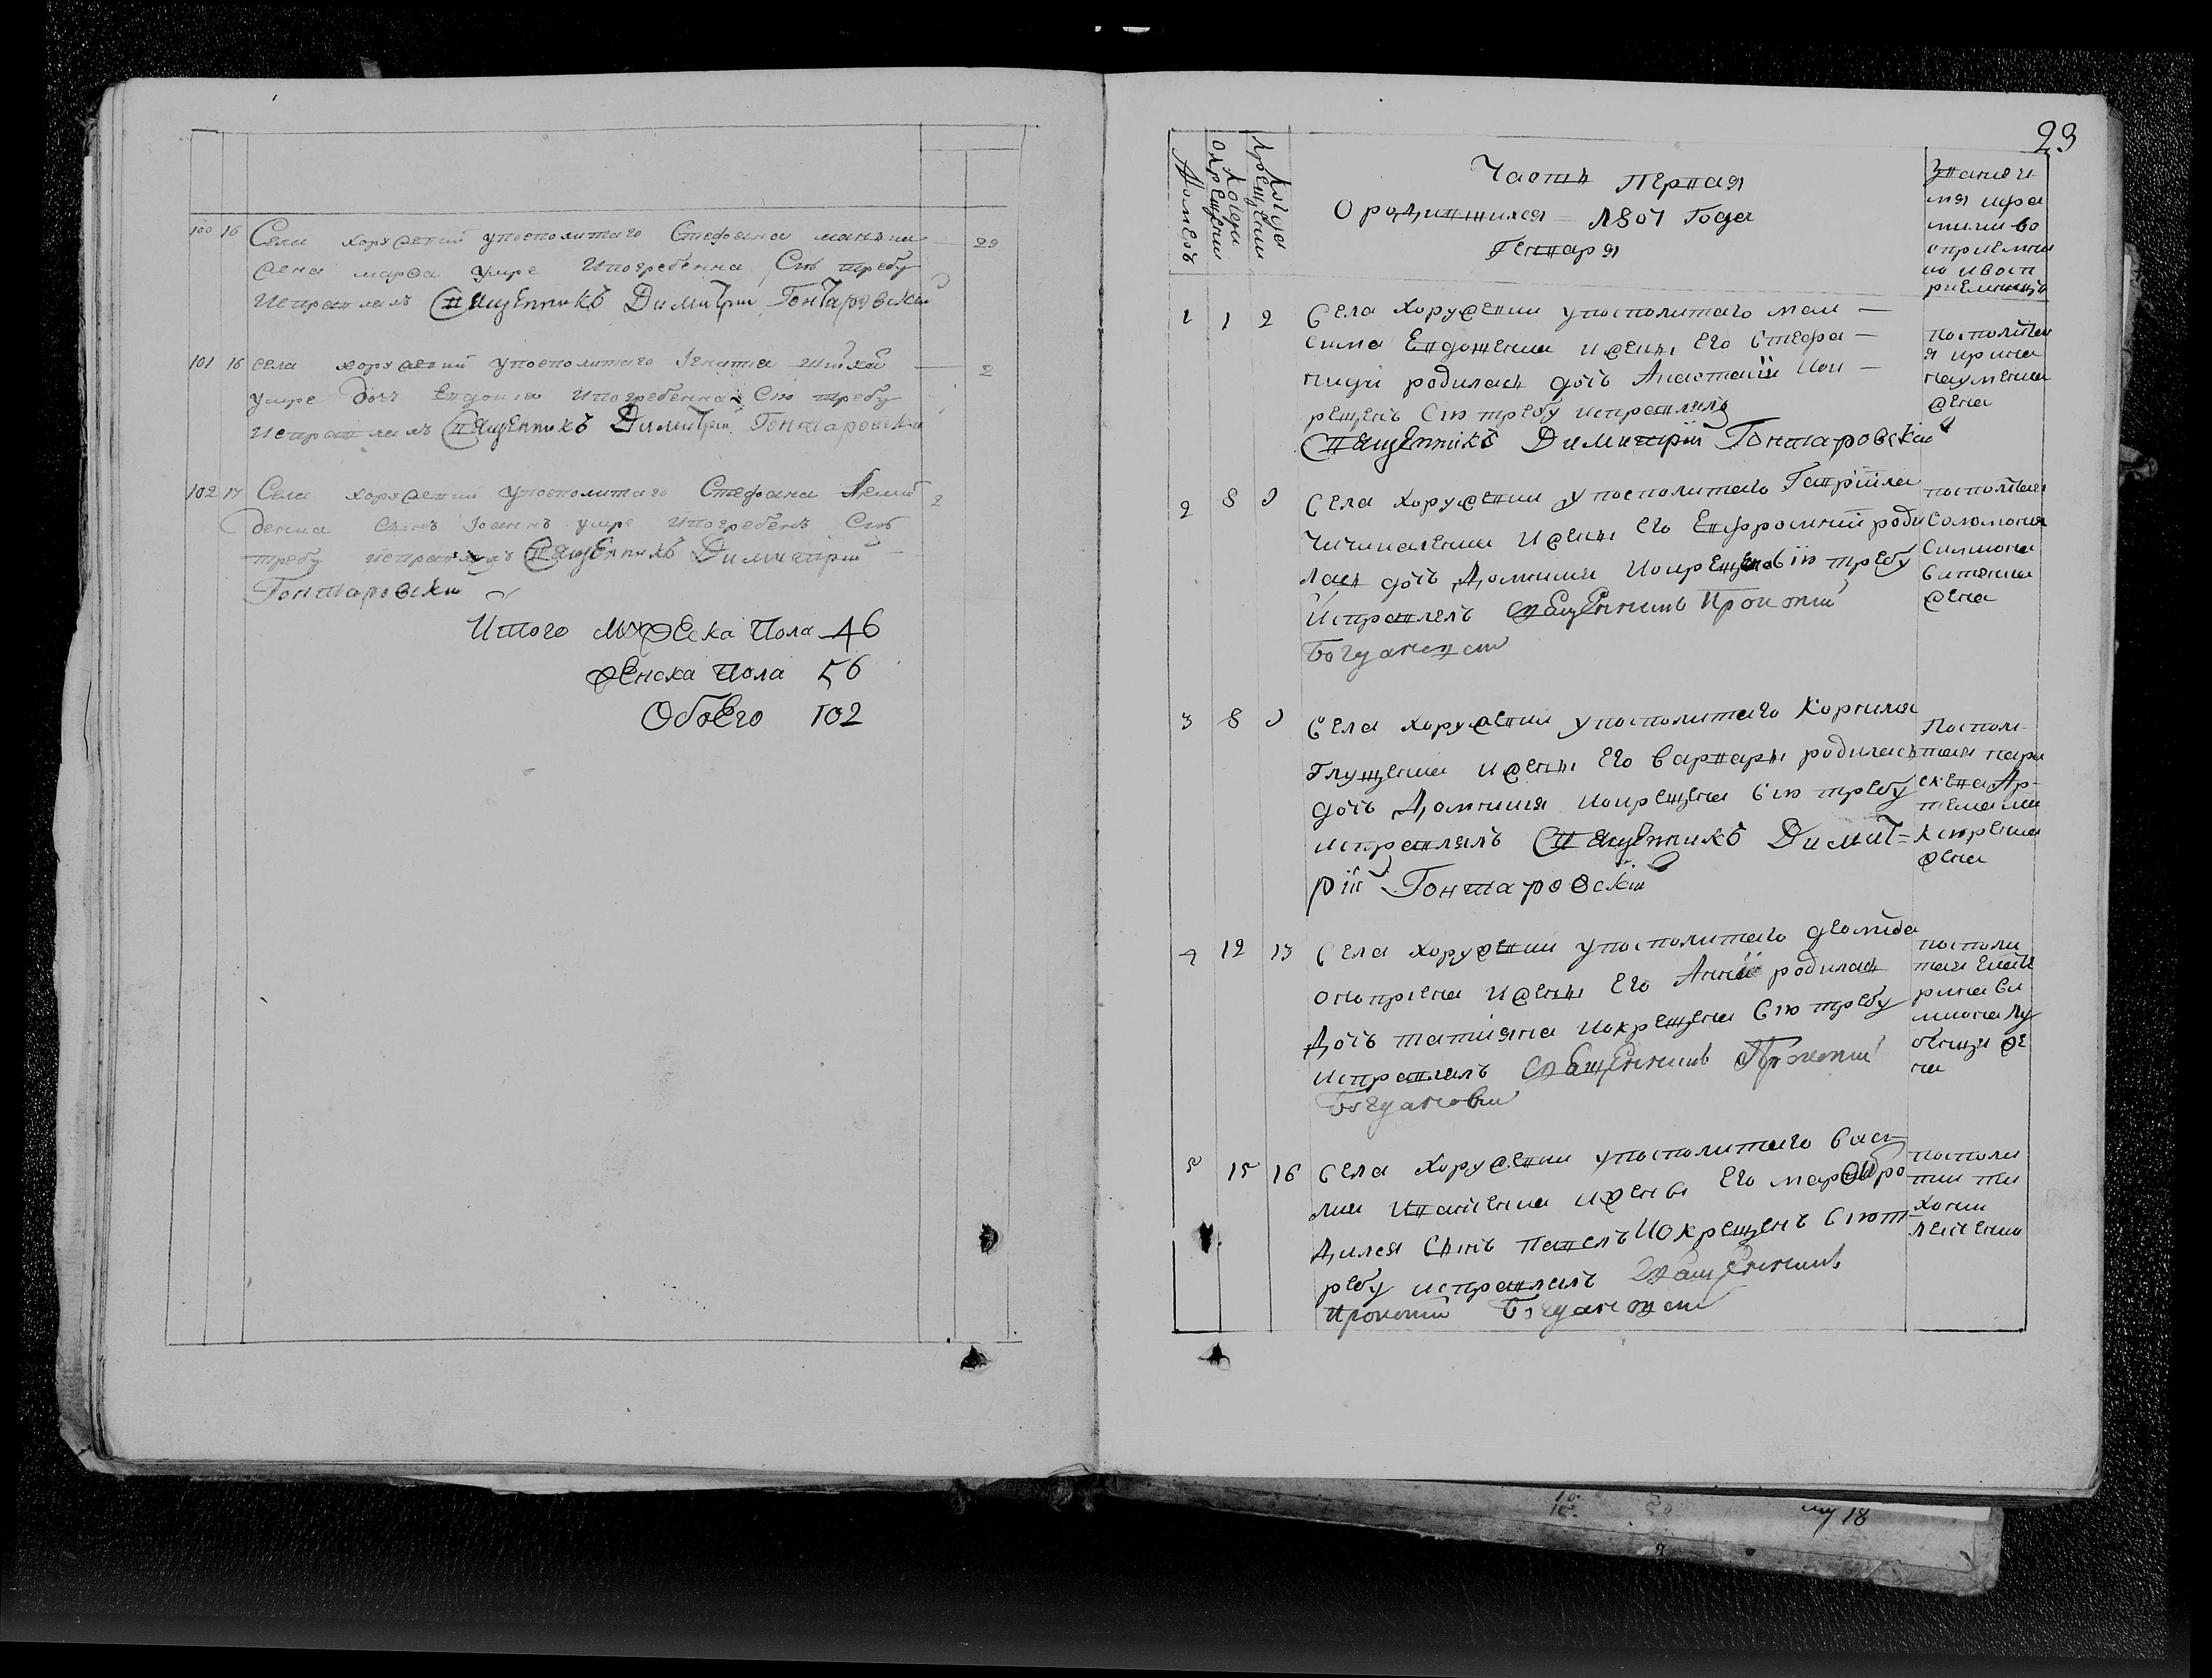 100 16 Села хоружевки упосполитаго Стефана
жена марфа умре Ипогребенна Сию требу 29
Исправлялъ Священникъ Димитрий Гончаровский
101 16 села хоружевки упосполитаго Игната
умре дочь Евдокиа Ипогребенна Сию требу 2
Исправлялъ Священникъ Димитрий Гонтаровский
102 17 Села хоружевки Упосполитаго Стефана
Сынъ Иоаннъ умре Ипогребенъ Сию 2
требу исправлялъ Священникъ Димитрий
Гонтаровский
Итого мужеска Пола 46
женска Пола 56
Обоего 102
23
Номеръ
Часть Первая
О родившихся 1807 Года
Генваря
Звание и
мя ифа
милии во
сприемни
ка ивосп
риемницы
1 1 2 Села хоружевки упосполитаго мак
сима Евдокенка ижены Его Стефа
ниди родилась дочь Анастасия Ион
рещенъ Сию требу исправлялъ
Священникъ Димитрий Гонтаровский
посполитая
ирина
наумкина
жена
2 8 9 Села хоружевки упосполитаго Гавриила
ижены Его Евфросинии роди
лась дочь Домникия Иокрещена Сию требу
Исправлялъ священникъ Прокопий
Богдановский
посполитая
Соломония
Симиона
жена
3 8 9 Села хоружевки упосполитаго Корнилия
Глущенка ижены Его варвары родилась
дочь Домникия Иокрещена Сию требу
исправлялъ Священникъ Димит
рий Гонтаровский
Посполи
тая пара
скева Ар
жена
4 12 13 Села хоружевки упосполитаго деомида
оноприенка ижены Его Анны родилась
Дочь татияна Иокрещена Сию требу
исправлялъ священникъ Прокопий
Богдановский
посполи
тая Екате
рина Си
миона Лу
бенця же
на
5 15 16 Села хоружевки упосполитаго васи
лия Иваненка ижены Его марфы ро
дился Сынъ павелъ Иокрещенъ Сию т
ребу исправлялъ Священникъ
Прокопий Богдановский
посполи
тий ти
хонъ